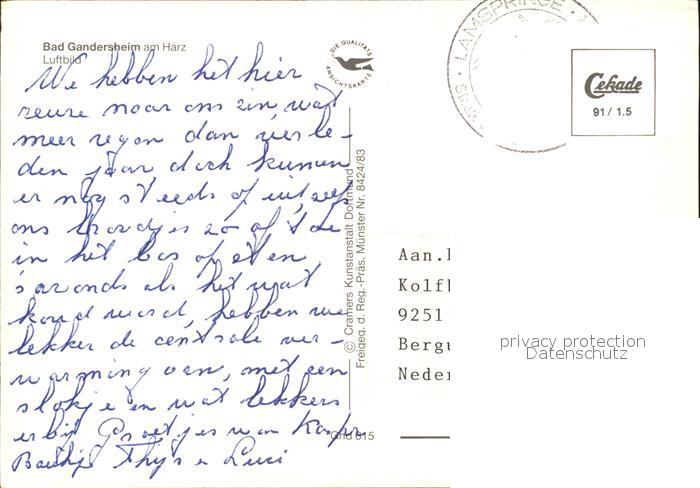 Bad Gandersheim am Harz
Luftbild
DIE QUALITÄTS
ANSICHTSKARTE
LAMSPRINGE
Cekade
91 / 1.5
We hebben het hier
reuze naar ons zin, wat
meer regen dan verle-
den jaar, doch kunnen
er nog steeds op uit,
ons broodjes zo af & toe
in het bos op eten,
s'avonds als het wat
koud word, hebben we
lekker de centrale ver-
warming aan, met een
slokje en wat lekkers
erbij Groetjes van
Thijs Luci
© Cramers Kunstanstalt Dortmund
Freigeg. d. Reg.-Präs. Münster Nr. 8424/83
Aan.
Kolf
9251
Bergu
Neder
privacy protection
Datenschutz